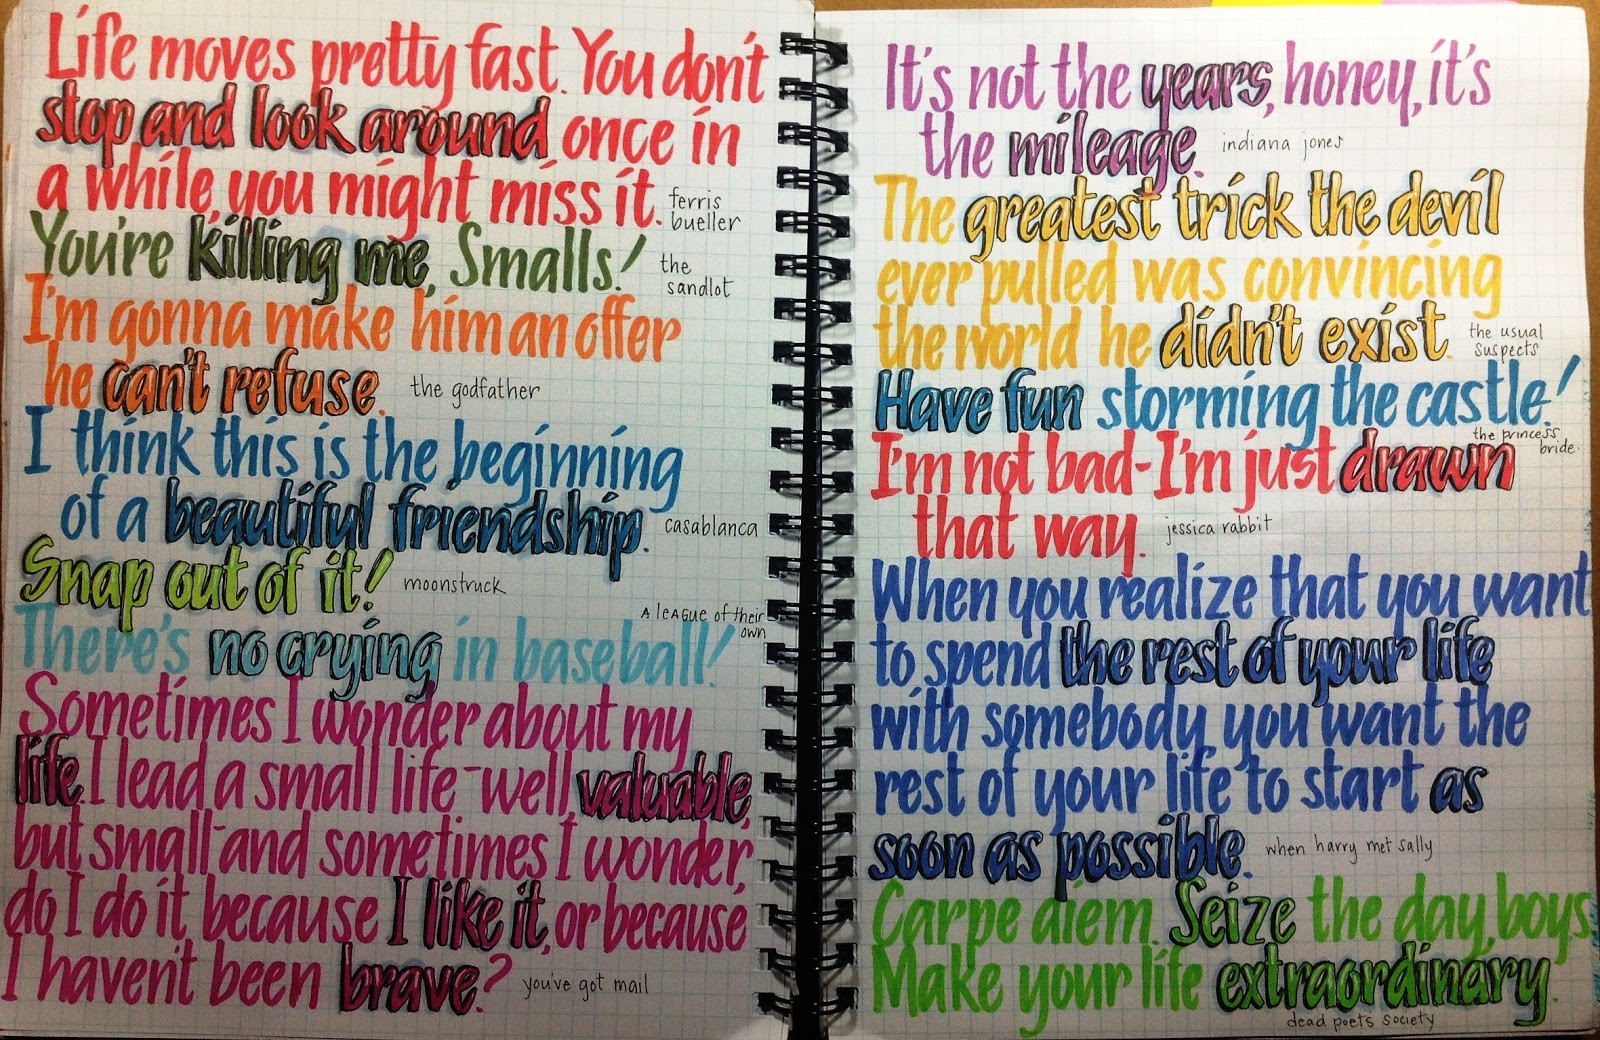 Life moves pretty fast. You don't
stop and look around once in
a while, you might miss it.
ferris
bueller
You're killing me, Smalls!
the
sandlot
I'm gonna make him an offer
he can't refuse.
the godfather
I think this is the beginning
of a beautiful friendship.
casablanca
Snap out of it!
moonstruck
A LEAGUE OF their
own
There's no crying in baseball!
Sometimes I wonder about my
life. I lead a small life-well, valuable,
but small-and sometimes I wonder,
do I do it because I like it, or because
I haven't been brave?
you've got mail
It's not the years, honey, it's
the mileage.
indiana jones
The greatest trick the devil
ever pulled was convincing
the world he didn't exist.
the usual
suspects
Have fun storming the castle!
the princess
bride.
I'm not bad-I'm just drawn
that way.
jessica rabbit
When you realize that you want
to spend the rest of your life
with somebody, you want the
rest of your life to start as
soon as possible.
when harry met sally
Carpe diem. Seize the day, boys.
Make your life extraordinary.
dead poets society